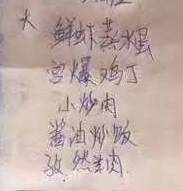 大 鲜虾蒸水蛋
宫爆鸡丁
小炒肉
酱油炒饭
孜然羊肉